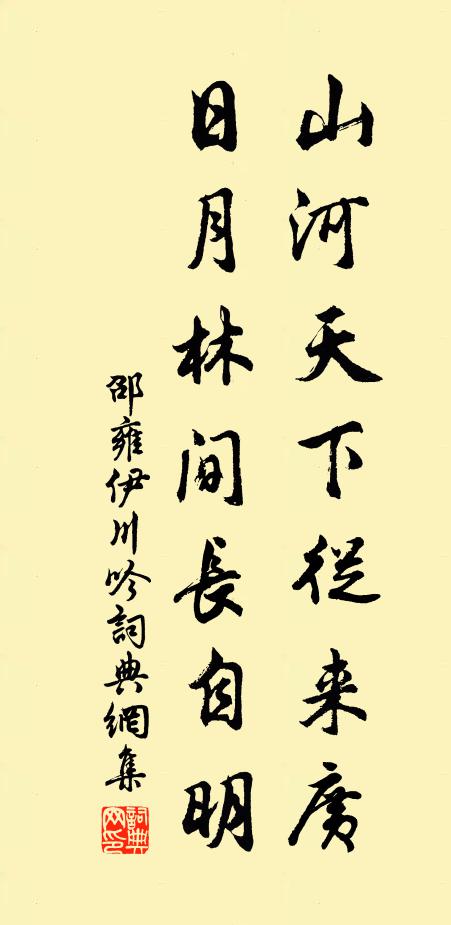 山河天下從来廣
日月林間長自明
邵雍伊川吟詞典網集
詞典
网印